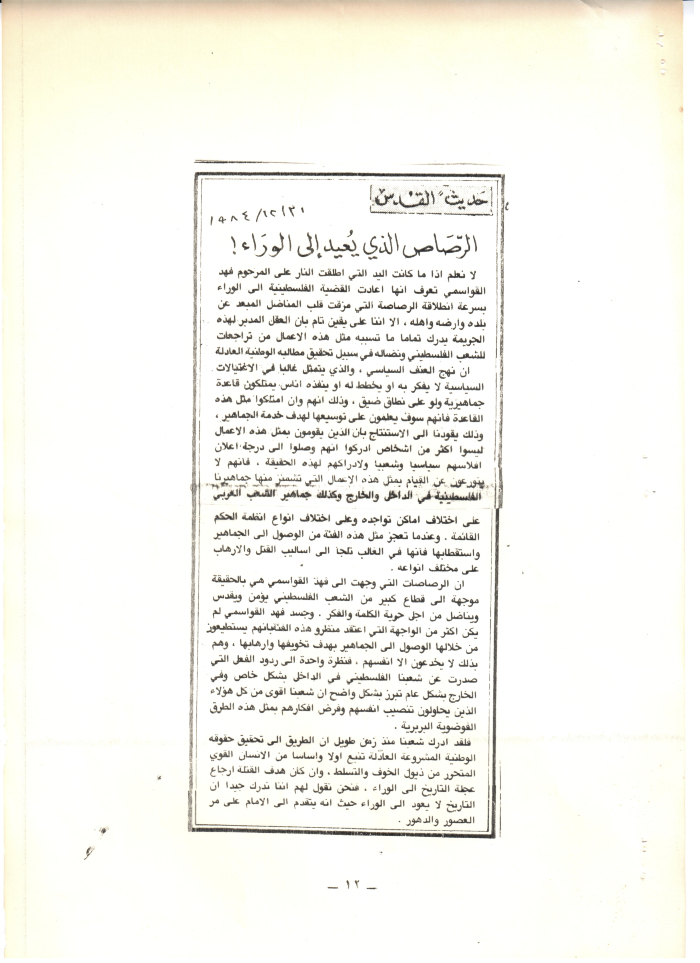 حديث القدس
١٩٨٤/١٢/٣١
الرّصَاص الذي يُعيد إلى الورَاء!
لا نعلم اذا ما كانت اليد التي اطلقت النار على المرحوم فهد
القواسمي تعرف انها اعادت القضية الفلسطينية الى الوراء
بسرعة انطلاقة الرصاصة التي مزقت قلب المناضل المبعد عن
بلده وارضه واهله ، الا اننا على يقين تام بان العقل المدبر لهذه
الجريمة يدرك تماما ما تسببه مثل هذه الاعمال من تراجعات
للشعب الفلسطيني ونضاله في سبيل تحقيق مطالبه الوطنية العادلة
ان نهج العنف السياسي ، والذي يتمثل غالبا في الاغتيالات
السياسية لا يفكر به او يخطط له او ينفذه اناس يمتلكون قاعدة
جماهيرية ولو على نطاق ضيق ، وذلك انهم وان امتلكوا مثل هذه
القاعدة فأنهم سوف يعلمون على توسيعها لهدف خدمة الجماهير ،
وذلك يقودنا الى الاستنتاج بان الذين يقومون بمثل هذه الاعمال
ليسوا اكثر من اشخاص ادركوا انهم وصلوا الى درجة اعلان
افلاسهم سياسيا وشعبيا ولادراكهم لهذه الحقيقة ، فانهم لا
يتورعون عن القيام بمثل هذه الاعمال التي تشمئز منها جماهيرنا
الفلسطينية في الداخل والخارج وكذلك جماهير الشعب العربي
على اختلاف اماكن تواجده وعلى اختلاف انواع انظمة الحكم
القائمة . وعندما تعجز مثل هذه الفئة من الوصول الى الجماهير
واستقطابها فأنها في الغالب تلجأ الى اساليب القتل والارهاب
على مختلف انواعه .
ان الرصاصات التي وجهت الى فهد القواسمي هي بالحقيقة
موجهة الى قطاع كبير من الشعب الفلسطيني يؤمن ويقدس
ويناضل من اجل حرية الكلمة والفكر . وجسد فهد القواسمي لم
يكن اكثر من الواجهة التي اعتقد منظرو هذه الفئة بانهم يستطيعون
من خلالها الوصول الى الجماهير بهدف تخويفها وارهابها ، وهم
بذلك لا يخدعون الا انفسهم ، فنظرة واحدة الى ردود الفعل التي
صدرت عن شعبنا الفلسطيني في الداخل بشكل خاص وفي
الخارج بشكل عام تبرز بشكل واضح ان شعبنا اقوى من كل هؤلاء
الذين يحاولون تنصيب انفسهم وفرض افكارهم بمثل هذه الطرق
الفوضوية البربرية .
فلقد ادرك شعبنا منذ زمن طويل ان الطريق الى تحقيق حقوقه
الوطنية المشروعة العادلة تنبع اولا واساسا من الانسان القوي
المتحرر من ذيول الخوف والتسلط ، وان كان هدف القتلة ارجاع
عجلة التاريخ الى الوراء . فنحن نقول لهم اننا ندرك جيدا ان
التاريخ لا يعود الى الوراء حيث انه يتقدم الى الامام على مر
العصور والدهور .
ـ ١٢ ـ